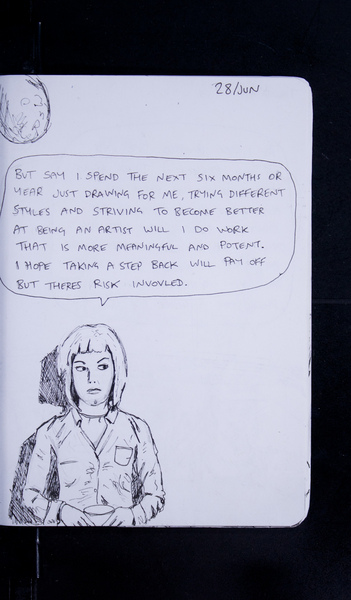 28/JUN
BUT SAY I SPEND THE NEXT SIX MONTHS OR
YEAR JUST DRAWING FOR ME, TRYING DIFFERENT
STYLES AND STRIVING TO BECOME BETTER
AT BEING AN ARTIST WILL I DO WORK
THAT IS MORE MEANINGFUL AND POTENT.
I HOPE TAKING A STEP BACK WILL PAY OFF
BUT THERES RISK INVOVLED.